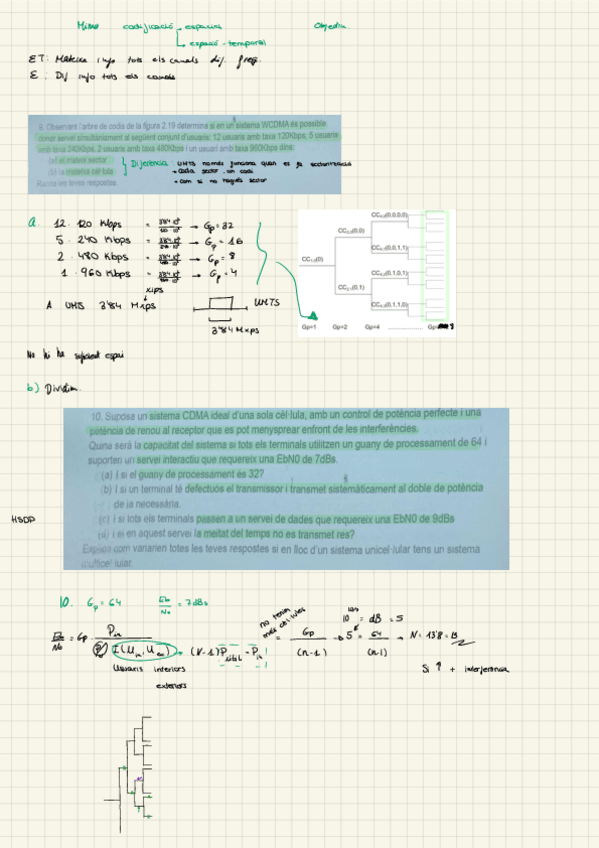 codificació espacial Objectiu
espació-temporal
ET: Mateixa info tots els canals dif. freq.
E: Dif info tots els canals
9. Observant l'arbre de codis de la figura 2.19 determina si en un sistema WCDMA es possible
donar servei simultàniament al següent conjunt d'usuaris: 12 usuaris amb taxa 120Kbps, 5 usuaris
amb taxa 240Kbps, 2 usuaris amb taxa 480Kbps i un usuari amb taxa 960Kbps dins:
(a) el mateix sector
(b) la mateixa cèl·lula
Diferència: UMTS només funciona quan es fa sectorització
cada sector, un codi
com si no hagués sector
Raona les teves respostes.
a. 12. 120 Kbps = → Gp = 32
5. 240 Kbps = → Gp = 16
2. 480 Kbps = → Gp = 8
1. 960 Kbps = → Gp = 4
xips
A UMTS 3'84 Mxps UMTS
3'84 Mxps
CC1,0(0)
CC2,0(0,0)
CC2,1(0,1)
CC4,0(0,0,0,0)
CC4,1(0,0,1,1)
CC4,2(0,1,0,1)
CC4,3(0,1,1,0)
Gp=1 Gp=2 Gp=4
No hi ha suficient espai
b) Dividim.
10. Suposa un sistema CDMA ideal d'una sola cèl·lula, amb un control de potència perfecte i una
potència de renou al receptor que es pot menysprear enfront de les interferències.
Quina serà la capacitat del sistema si tots els terminals utilitzen un guany de processament de 64 i
suporten un servei interactiu que requereix una EbN0 de 7dBs.
(a) I si el guany de processament és 32?
(b) I si un terminal té defectuós el transmissor i transmet sistemàticament al doble de potència
de la necessària.
HSDP
(c) I si tots els terminals passen a un servei de dades que requereix una EbN0 de 9dBs
(d) I si en aquest servei la meitat del temps no es transmet res?
Explica com varien totes les teves respostes si en lloc d'un sistema unicel·lular tens un sistema
multicel·lular.
10. Gp = 64 Eb/N0 = 7dBs
no tenim
més cèl·lules
Gp/(n-1) → 5 = 64/(n-1) → N = 13'8 = 13
Usuaris interiors
exteriors
Si ↑ + interferència